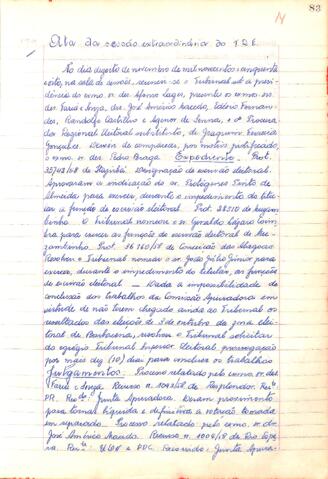 83
Ata da sessão extraordinária do T.R.E.
Ao dia quatro de novembro de mil novecentos e cinquenta
e oito, na sala de sessões, reuniu-se o Tribunal sob a presi-
dência do exmo. sr. des. Afonso Lages, presente os exmos. srs.
des. Faria e Sousa, drs. José Américo Macedo, Fernan-
des, Randolfo Castilho e Agenor de Senna, e o Procura-
dor Regional eleitoral substituto, dr. Joaquim Ferreira
Gonçalves. Deixou de comparecer, por motivo justificado,
o exmo. sr. des. Pedro Braga. Expediente. Prot.
35743/58 de Itajubá. Designação de escrivão eleitoral.
Aprovaram a indicação do sr. Protógenes Pinto de
Almeida para exercer, durante o impedimento do titu-
lar a função de escrivão eleitoral. Prot. 38710 de
O Tribunal nomeou o sr. Geraldo Edgard Coim-
bra para exercer as funções de escrivão eleitoral de Mu-
zambinho. Prot. 36760/58 de Conceição das Alagoas
Resolveu o Tribunal nomear o sr. João Júlio Júnior para
exercer, durante o impedimento do titular, as funções
de escrivão eleitoral — Dada a impossibilidade de
conclusão dos trabalhos da Comissão Apuradora em
virtude de não terem chegado ainda ao Tribunal os
resultados das eleições de 3 de outubro da zona elei-
toral de Barbacena, resolveu o Tribunal solicitar
do egrégio Tribunal Superior Eleitoral, prorrogação
por mais dez (10) dias para concluir os trabalhos
Julgamentos: Processo relatado pelo exmo. sr. des.
Faria e Sousa Recurso n. 1093/58 de Resplendor. Rec.te
PR. Rec.do: Junta Apuradora. Deram provimento
para tornar líquida e definitiva a votação tomada
em separado. Processo relatado pelo exmo. sr. dr.
José Américo Macedo. Recurso n. 1004/58 de Rio Espe-
ra. Rec.te: e PDC. Recorrido: Junta Apura-